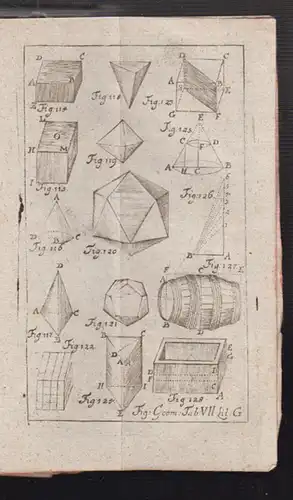 D C
A B
Fig. 114
Fig. 118
D C
A B
E
G E F
Fig. 123
L
G
H M
I
Fig. 115
Fig. 119
Fig. 125
C F D
A B
H G
A
D C
B
Fig. 116
Fig. 120
Fig. 126
B A
Fig. 127
D
A C
B
Fig. 117
Fig. 121
A C E
F
B D
Fig. 122
D
A
H I
E
Fig. 124
E
G
D B
F C
A
Fig. 128
Fig: Geom: Tab VII lit G